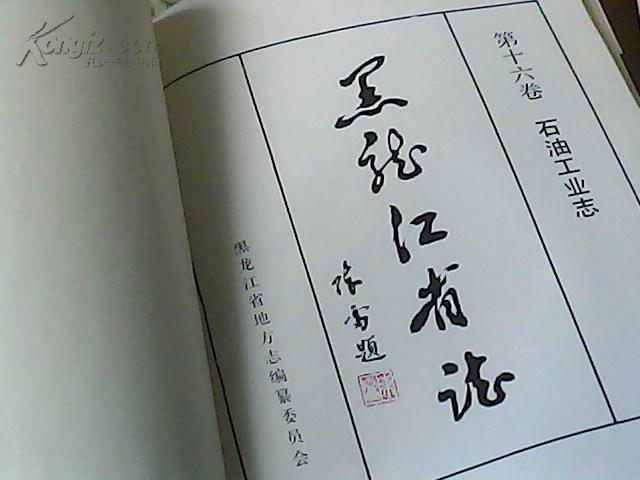 第十六卷 石油工业志
黑龙江省志
陈雷题
黑龙江省地方志编纂委员会
Kongfz.com